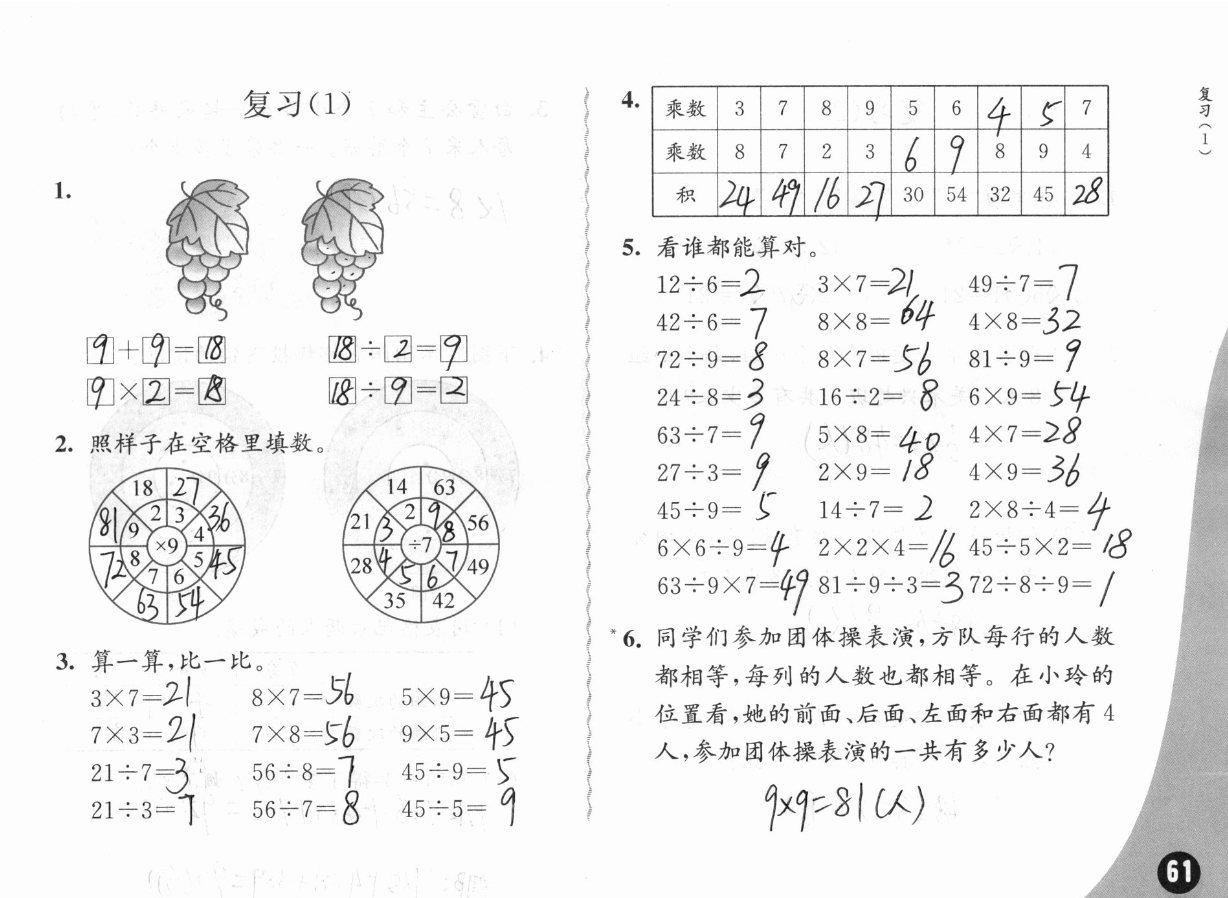 复习(1)
1.
9+9=18 18÷2=9
9×2=18 18÷9=2
2. 照样子在空格里填数。
18 27 36 45 54 63 72 81
2 3 4 5 6 7 8 9
×9
14 63 56 49 42 35 28 21
2 9 8 7 6 5 4 3
÷7
3. 算一算,比一比。
3×7=21 8×7=56 5×9=45
7×3=21 7×8=56 9×5=45
21÷7=3 56÷8=7 45÷9=5
21÷3=7 56÷7=8 45÷5=9
4. 乘数 3 7 8 9 5 6 4 5 7
乘数 8 7 2 3 6 9 8 9 4
积 24 49 16 27 30 54 32 45 28
5. 看谁都能算对。
12÷6=2 3×7=21 49÷7=7
42÷6=7 8×8=64 4×8=32
72÷9=8 8×7=56 81÷9=9
24÷8=3 16÷2=8 6×9=54
63÷7=9 5×8=40 4×7=28
27÷3=9 2×9=18 4×9=36
45÷9=5 14÷7=2 2×8÷4=4
6×6÷9=4 2×2×4=16 45÷5×2=18
63÷9×7=49 81÷9÷3=3 72÷8÷9=1
*6. 同学们参加团体操表演,方队每行的人数
都相等,每列的人数也都相等。在小玲的
位置看,她的前面、后面、左面和右面都有 4
人,参加团体操表演的一共有多少人?
9×9=81(人)
复习(1)
61